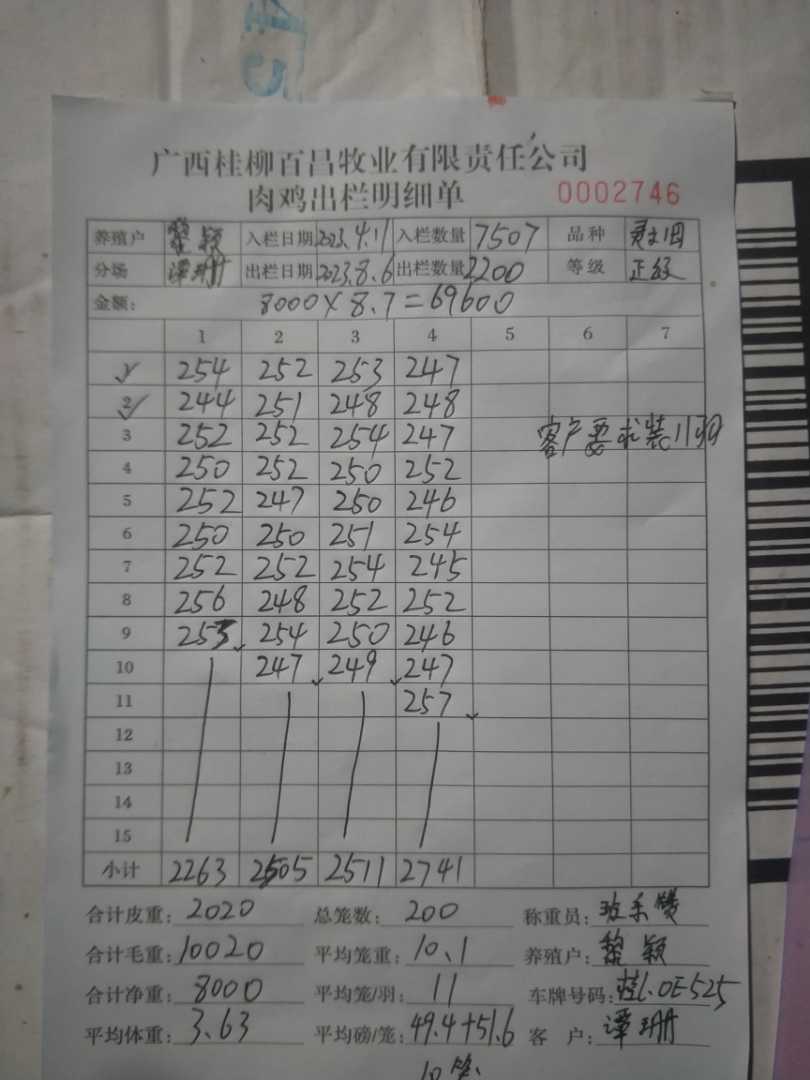 广西桂柳百昌牧业有限责任公司
肉鸡出栏明细单 0002746
养殖户 黎颖 入栏日期 2023.4.11 入栏数量 7507 品种
分场 谭珊 出栏日期 2023.8.6 出栏数量 2200 等级 正级
金额: 8000×8.7=69600
1 2 3 4 5 6 7
1 254 252 253 247
2 244 251 248 248
3 252 252 254 247 客户要求装11羽
4 250 252 250 252
5 252 247 250 246
6 250 250 251 254
7 252 252 254 245
8 256 248 252 252
9 253 254 250 246
10 247 249 247
11 257
12
13
14
15
小计 2263 2505 2511 2741
合计皮重: 2020 总笼数: 200 称重员:
合计毛重: 10020 平均笼重: 10.1 养殖户: 黎颖
合计净重: 8000 平均笼/羽: 11 车牌号码: 桂L.0E525
平均体重: 3.63 平均磅/笼: 49.4+51.6 客户: 谭珊
10笼.